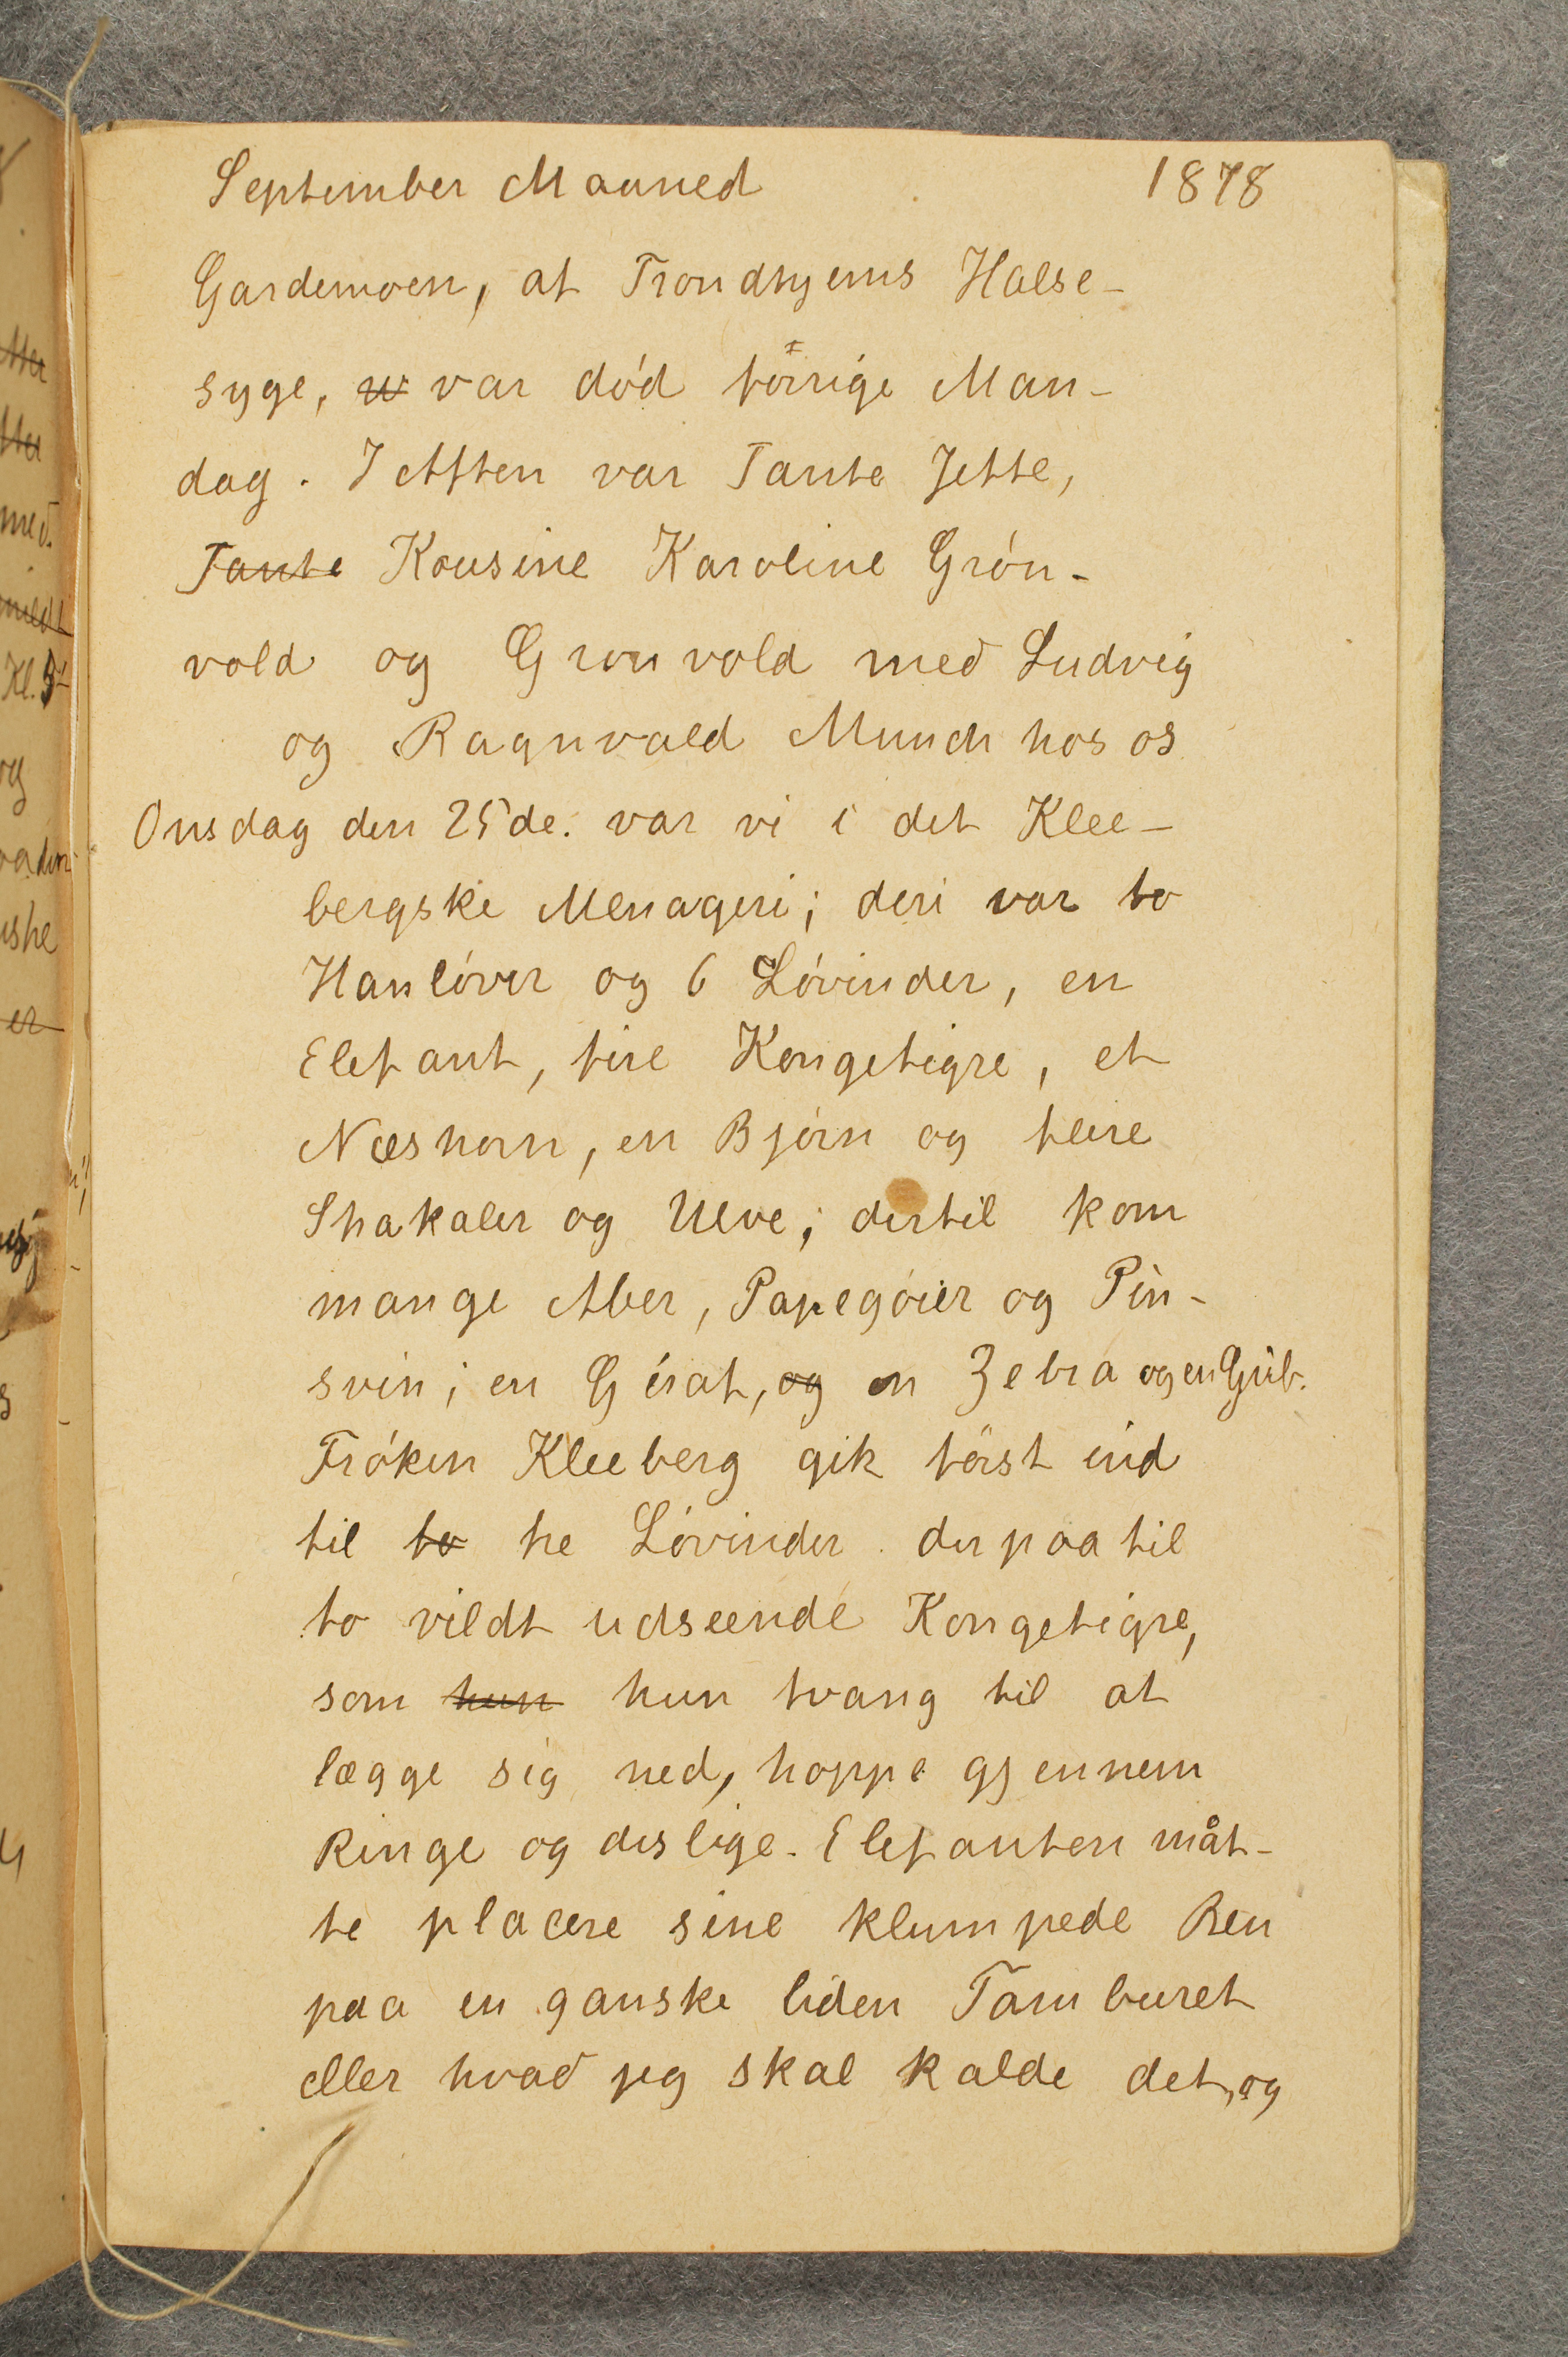 September Maaned 1878
Gardemoen, af Trondhjems Halse-
syge, ~~w~~ var død förrige Man-
dag. I Aften var Tante Jette,
~~Tante~~ Kousine Karoline Grón-
vold og Gronvold med Ludvig
og Ragnvald Munch hos os
Onsdag den 25de. var vi i det Klee-
bergske Menageri; deri var to
Hanlóver og 6 Lóvinder, en
Elefant, fire Kongetigre, et
Næshorn, en Bjórn og flere
Shakaler og Ulve; dertil kom
mange Aber, Papegóier og Pin-
svin; en Giraf, ~~og~~ en Zebra og en Grib.
Fróken Kleeberg gik fórst ind
til ~~to~~ tre Lóvinder derpaa til
to vildt udseende Kongetigre,
som ~~hun~~ hun tvang til at
lægge sig ned, hoppe gjennem
Ringe og deslige. Elefanten måt-
te placere sine klumpede Ben
paa en ganske liden Tamburet
eller hvad jeg skal kalde det, og